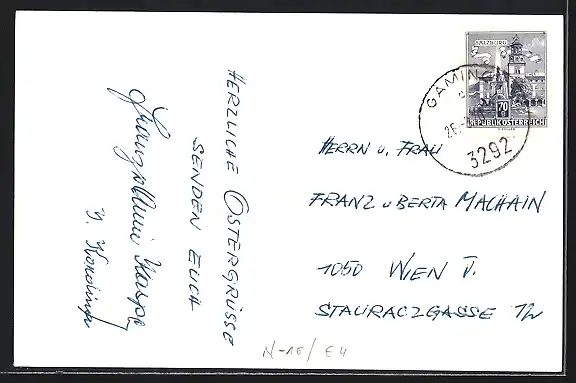 HERZLICHE OSTERGRÜSSE
SENDEN EUCH
SALZBURG
70
REPUBLIK ÖSTERREICH
GAMING
26.
3292
HERRN u. FRAU
FRANZ u BERTA MACHAIN
1050 WIEN V.
STAURACZGASSE
N-16/E4